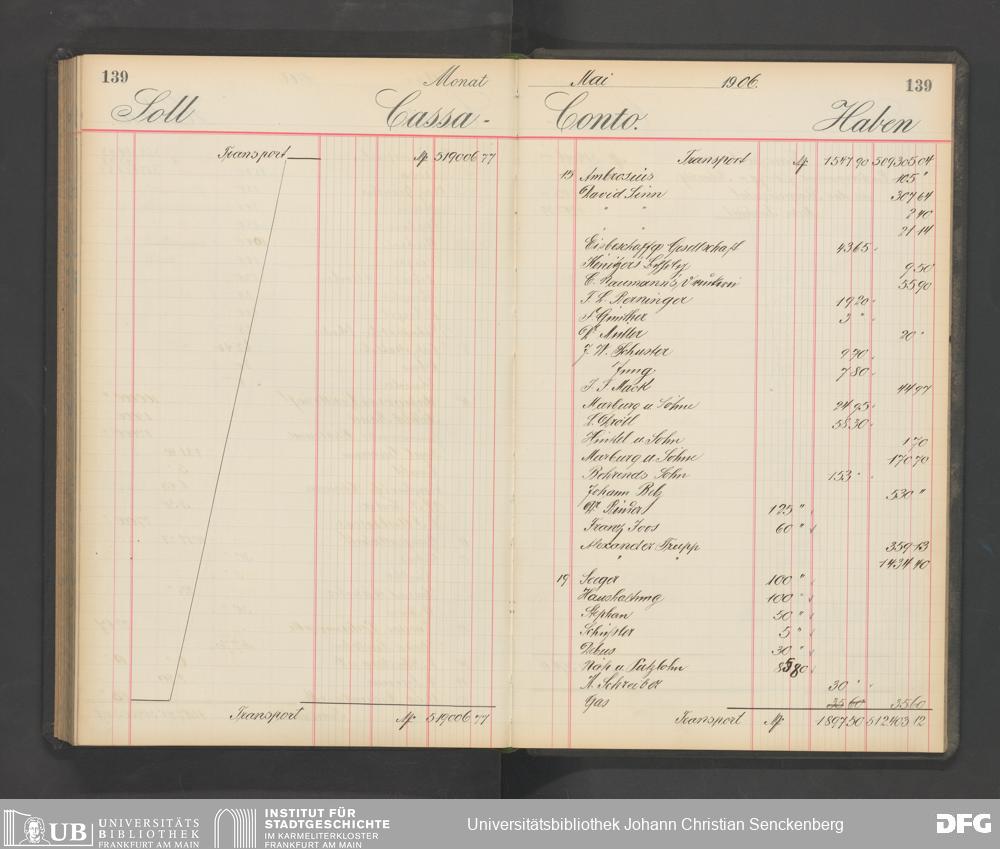 139 Monat
Soll Cassa-
Transport M 519006 77
Transport M 519006 77
Mai 1906. 139
Conto. Haben
Transport M 1547 90 509305 04
15 Ambrosius 105 "
David Linn 307 64
" " 2 40
" " 21 14
Gesellschaft 43 65
9 50
C. Naumann's Druckerei 55 90
19 20
F. Günther 3 "
Dr Müller 20 "
J. W. Schuster 9 90
Jung 7 80
J. F. Mack 44 97
Marburg u Söhne 24 95
58 30
Hindel u Sohn 1 70
Marburg u. Sohne 170 70
Behrends Sohn 153 "
Johann Belz 530 "
Dr 125 "
Franz Joos 60 "
Alexander Trupp 359 13
" " 1434 40
19 Seeger 100 "
Haushaltung 100 "
Stephan 50 "
Schüssler 5 "
Debus 30 "
Näh u Putzlohn 580
A. Schreiber 30 "
Gas 35 60 35 60
Transport M 1897 50 512403 12
UB UNIVERSITÄTS
BIBLIOTHEK
FRANKFURT AM MAIN
INSTITUT FÜR
STADTGESCHICHTE
IM KARMELITERKLOSTER
FRANKFURT AM MAIN
Universitätsbibliothek Johann Christian Senckenberg
DFG